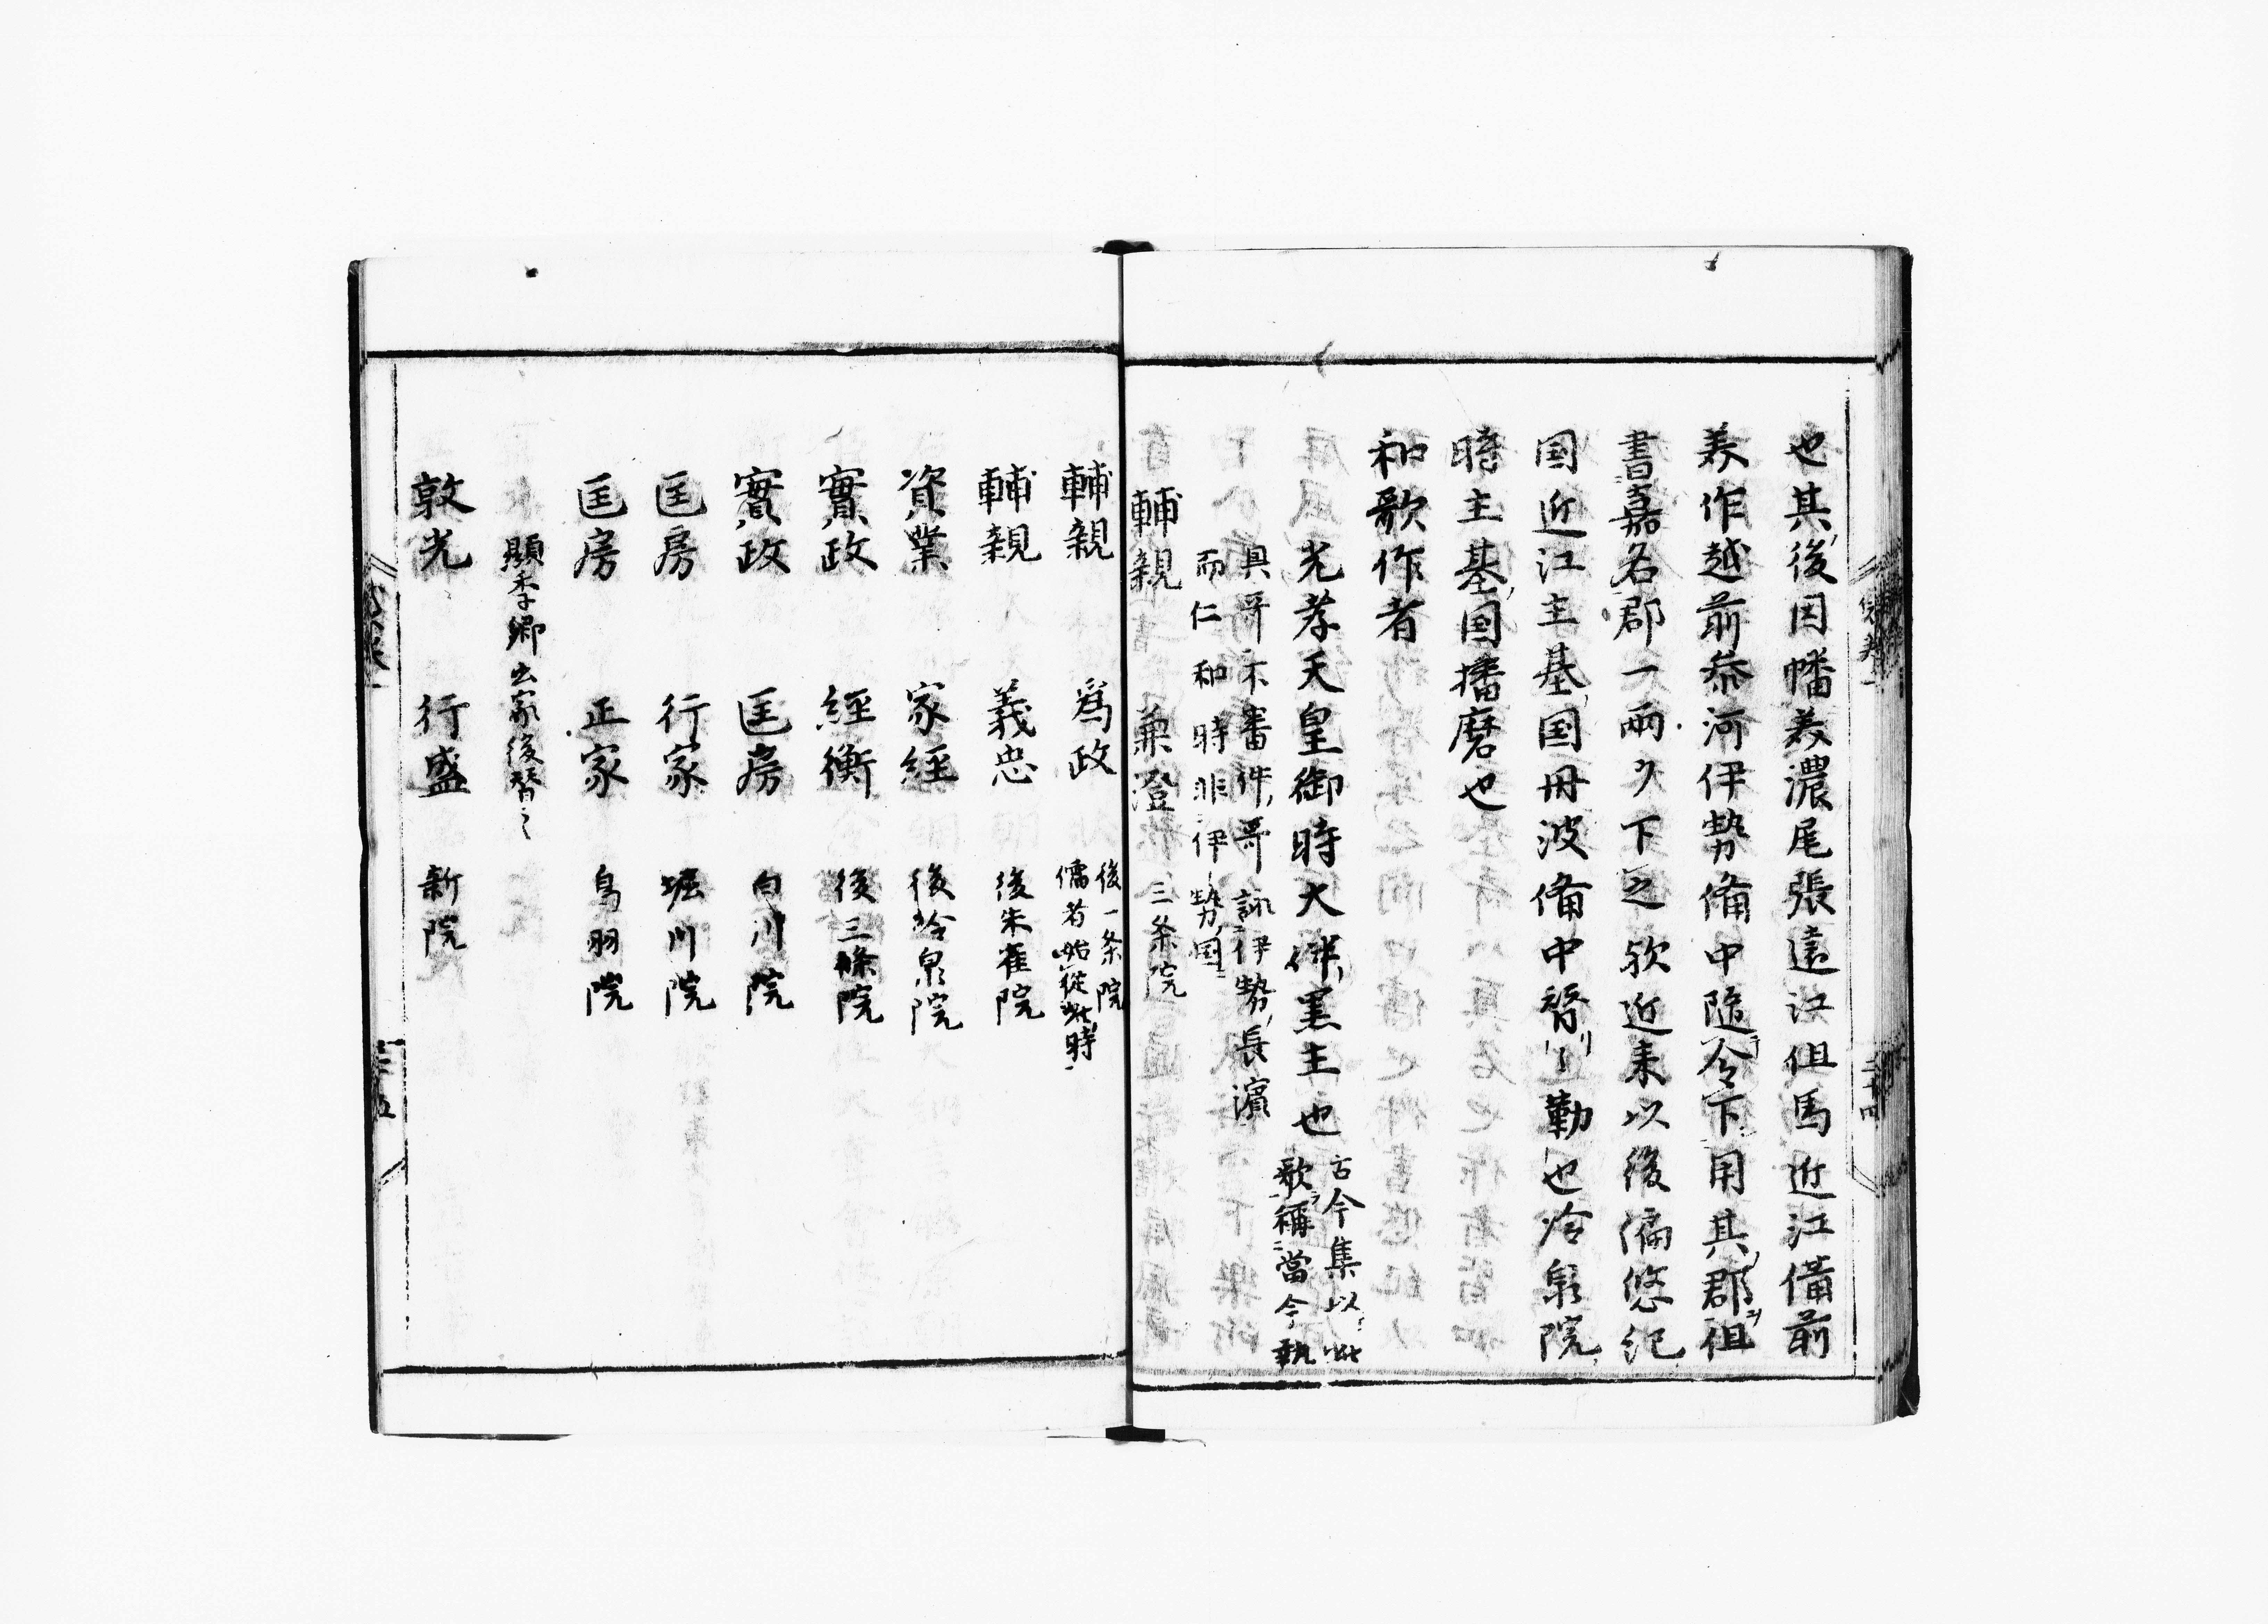 也其後因幡美濃尾張遠江但馬近江備前
美作越前参河伊勢備中随令下用其郡但
書嘉名郡一両ヲ下之欤近来以後偏悠紀
国近江主基国丹波備中替〻勤也冷泉院
時主基国播磨也
和歌作者
光孝天皇御時大伴黒主也
古今集以此
歌稱當今執
具哥不審件哥詠伊勢長濱
而仁和時非伊勢国
輔親 兼澄 三条院
輔親 為政 後一条院
儒者始従此時
輔親 義忠 後朱雀院
資業 家経 後冷泉院
實政 経衡 後三條院
實政 匡房 白川院
匡房 行家 堀川院
匡房 正家 鳥羽院
顯季卿出家後替之
敦光 行盛 新院